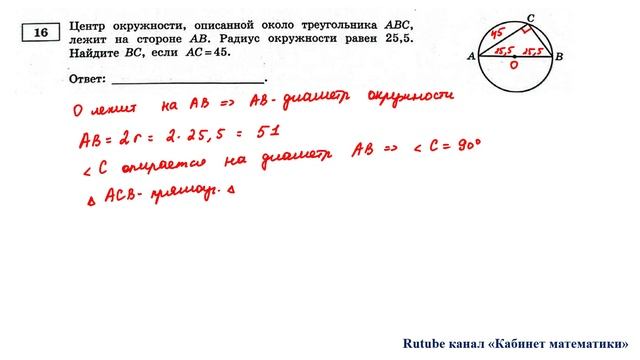 16
Центр окружности, описанной около треугольника ABC,
лежит на стороне AB. Радиус окружности равен 25,5.
Найдите BC, если AC = 45.
Ответ: ____________.
C
45
25,5 25,5
A B
O
O лежит на AB => AB - диаметр окружности
AB = 2r = 2 · 25,5 = 51
< C опирается на диаметр AB => < C = 90°
△ ACB - прямоуг. △
Rutube канал «Кабинет математики»